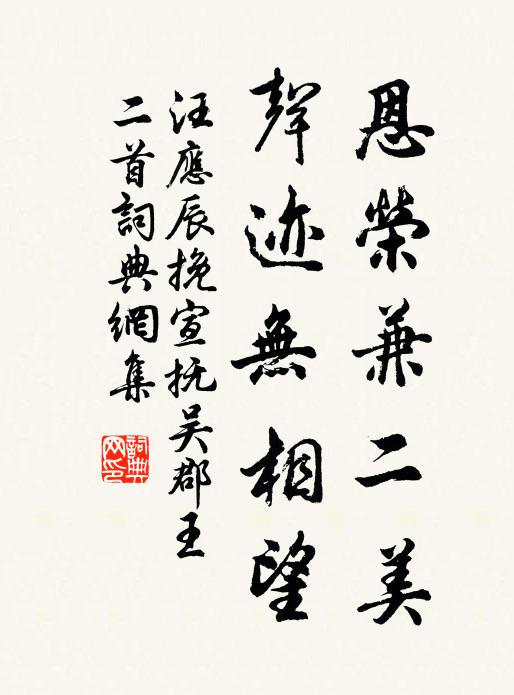 恩榮兼二美
聲迹無相望
汪應辰挽宣抚吴郡王
二首詞典網集
詞典
网印